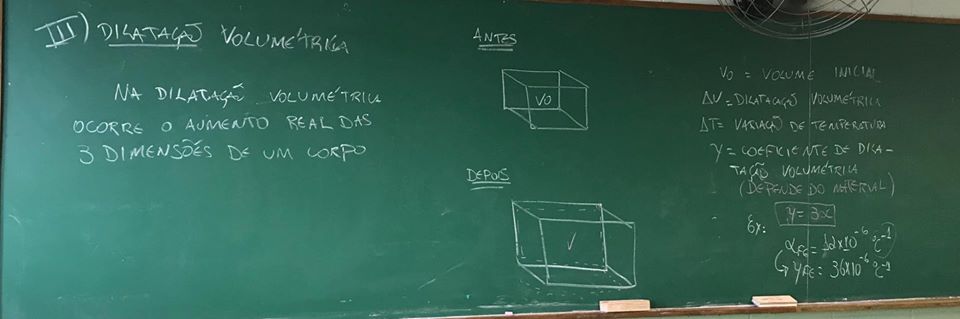 III) DILATAÇÃO VOLUMÉTRICA
NA DILATAÇÃO VOLUMÉTRICA
OCORRE O AUMENTO REAL DAS
3 DIMENSÕES DE UM CORPO
ANTES
V0
DEPOIS
V
V0 = VOLUME INICIAL
ΔV = DILATAÇÃO VOLUMÉTRICA
ΔT = VARIAÇÃO DE TEMPERATURA
γ = COEFICIENTE DE DILA-
TAÇÃO VOLUMÉTRICA
(DEPENDE DO MATERIAL)
γ = 3α
Ex:
αFe = 12x10⁻⁶ °C⁻¹
γFe = 36x10⁻⁶ °C⁻¹